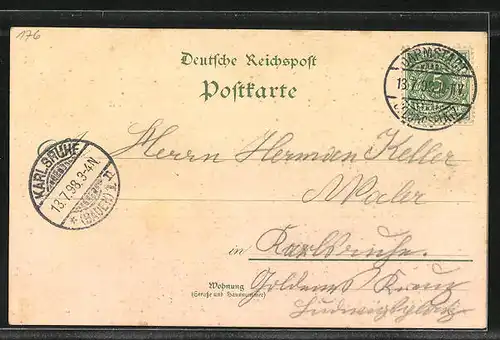 176
Deutsche Reichspost
Postkarte
DARMSTADT
13.7.98
KARLSRUHE
13.7.98.3-4N.
(BADEN)
Herrn Hermann Keller
Maler
in Karlsruhe.
Wohnung
(Straße und Hausnummer)
Goldenes Kreuz
Ludwigsplatz